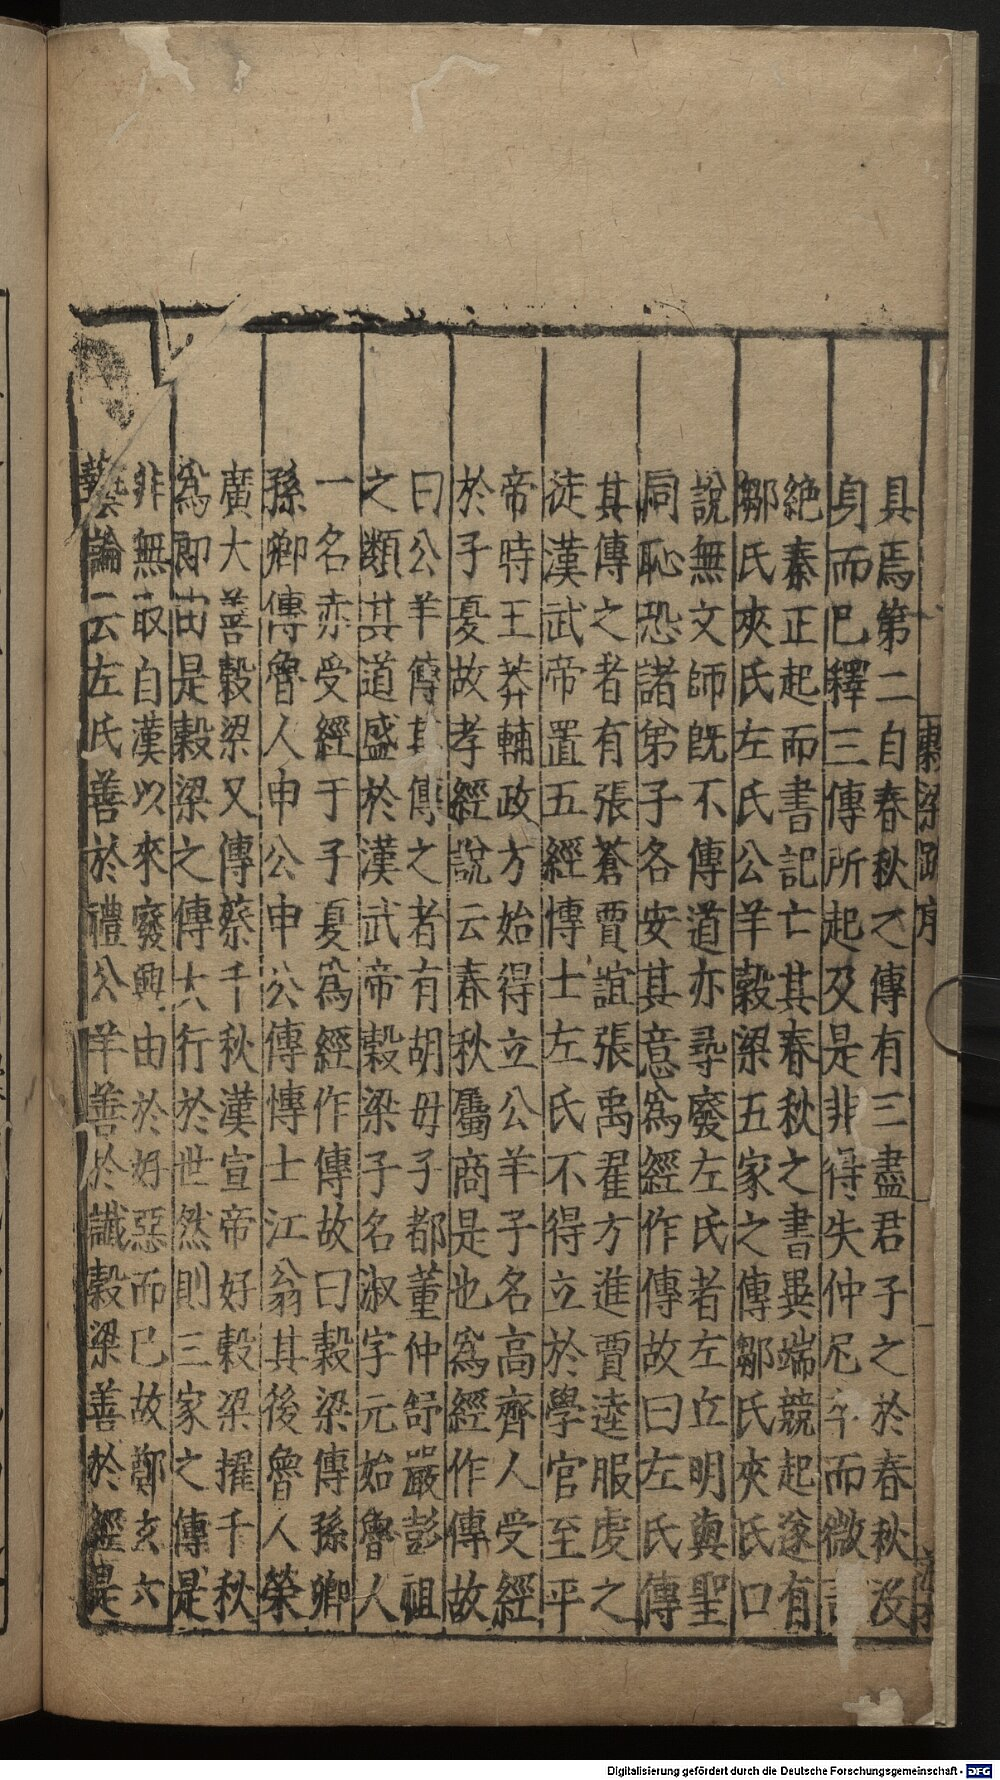 具焉第二自春秋之傳有三盡君子之於春秋没
身而已釋三傳所起及是非得失仲尼卒而微言
絶秦正起而書記亡其春秋之書異端競起遂有
鄒氏夾氏左氏公羊穀梁五家之傳鄒氏夾氏口
說無文師既不傳道亦尋廢左氏者左丘明與聖
同恥恐諸弟子各安其意爲經作傳故曰左氏傳
其傳之者有張蒼賈誼張禹翟方進賈逵服虔之
徒漢武帝置五經博士左氏不得立於學官至平
帝時王莽輔政方始得立公羊子名高齊人受經
於子夏故孝經說云春秋屬商是也爲經作傳故
曰公羊傳其傳之者有胡毋子都董仲舒嚴彭祖
之類其道盛於漢武帝穀梁子名淑字元始魯人
一名赤受經于子夏爲經作傳故曰穀梁傳孫卿
孫卿傳魯人申公申公傳博士江翁其後魯人榮
廣大善穀梁又傳蔡千秋漢宣帝好穀梁擢千秋
爲郎由是穀梁之傳大行於世然則三家之傳是
非無取自漢以來廢興由於好惡而已故鄭玄六
藝論云左氏善於禮公羊善於讖穀梁善於經是
穀梁疏序
Digitalisierung gefördert durch die Deutsche Forschungsgemeinschaft - DFG